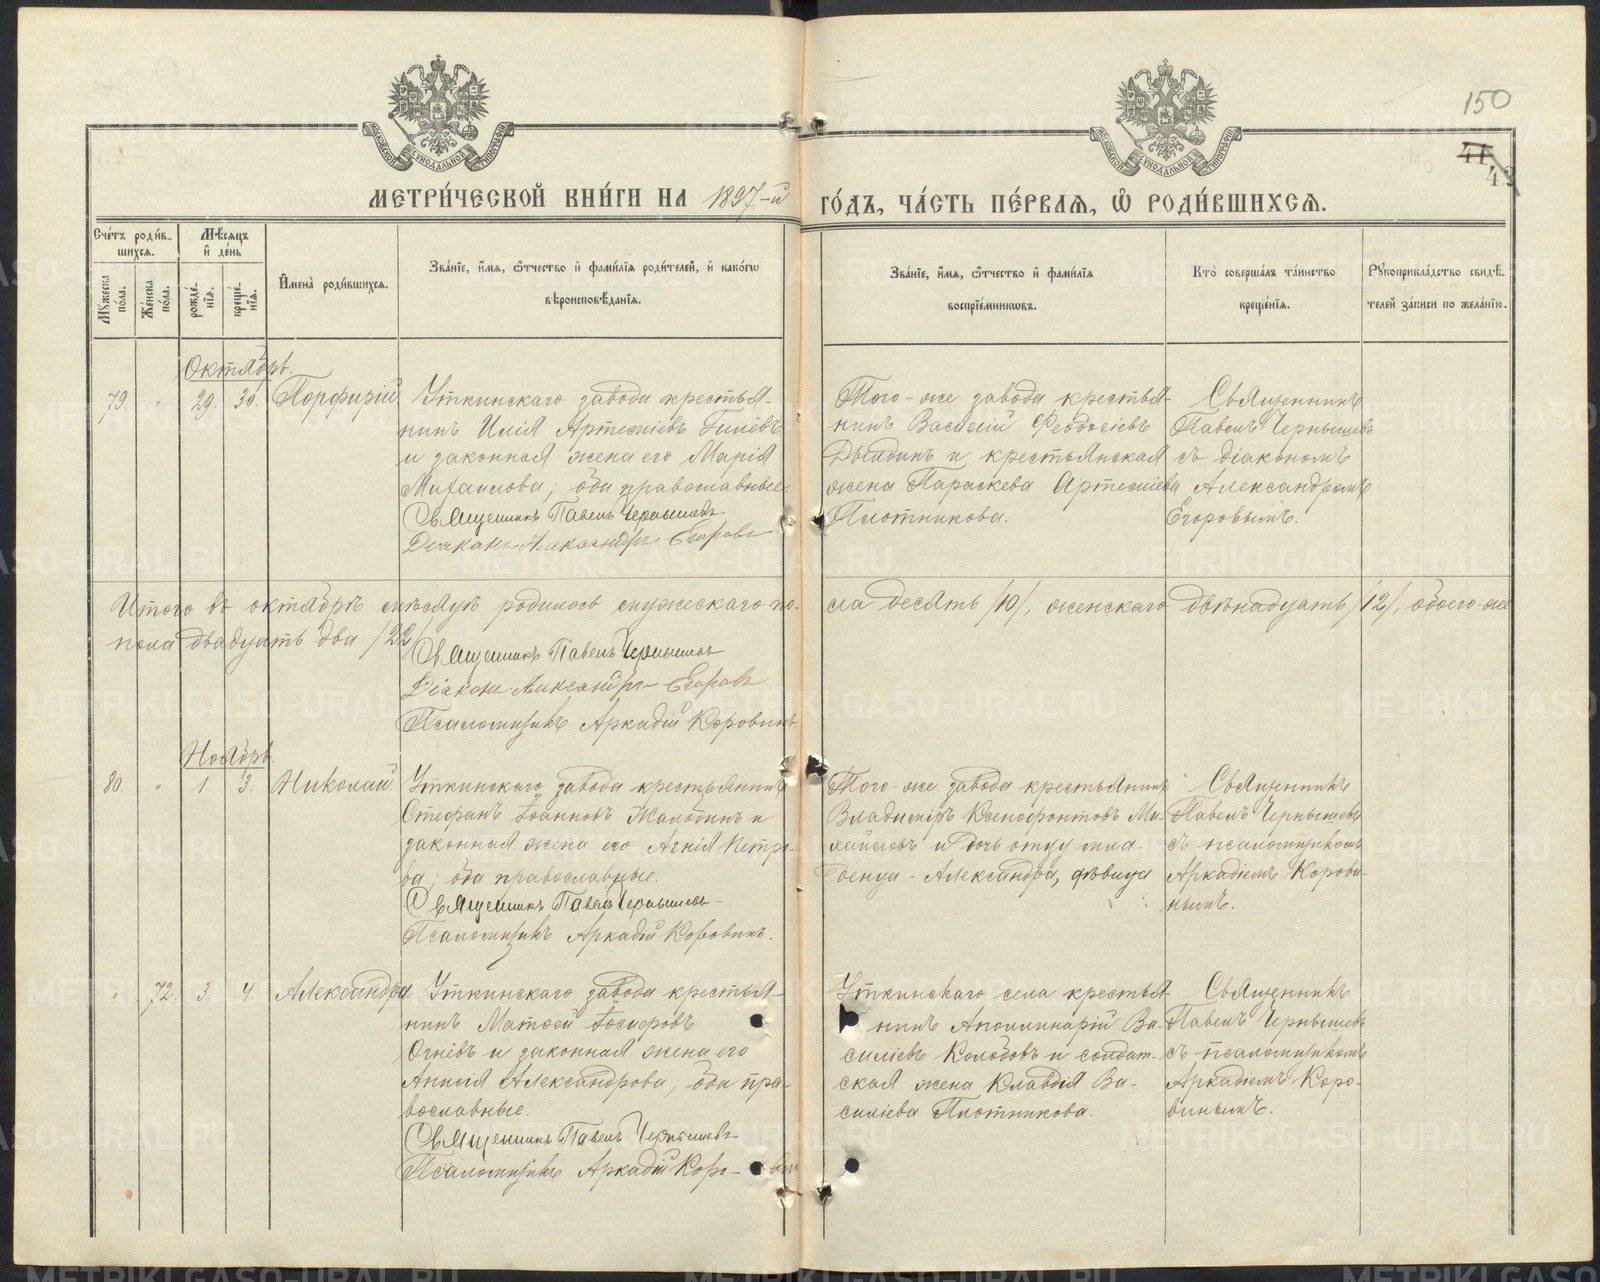 150
41
43
МОСКОВСКОЙ СѴНОДАЛЬНОЙ ТИПОГРАФІИ
МОСКОВСКОЙ СѴНОДАЛЬНОЙ ТИПОГРАФІИ
МЕТРИ́ЧЕСКОЙ КНИ́ГИ НА 1897-й ГО́ДЪ, ЧА́СТЬ ПЕ́РВАЯ, Ѽ РОДИ́ВШИХСЯ.
Сче́тъ роди́в-
шихся.
Мѣ́сяцъ
и҆ де́нь
Мꙋ́жеска
по́ла.
Же́нска
по́ла.
рожде́-
нїѧ.
креще́-
нїѧ.
И҆мена̀ роди́вшихся.
Зва́нїе, и҆́мѧ, ѻ҆́тчество и҆ фами́лїѧ роди́телей, и҆ како́гѡ
вѣроисповѣ́данїѧ.
Зва́нїе, и҆́мѧ, ѻ҆́тчество и҆ фами́лїѧ
воспрїе́мникѡвъ.
Кто̀ соверша́лъ та́инство
креще́нїѧ.
Рꙋкоприкла́дство свидѣ́-
телей за́писи по жела́нїю.
Октябрь.
79. " 29. 30. Порфирій.
Уткинскаго завода крестья-
нинъ Илія Артеміевъ Гилёвъ
и законная жена его Марія
Михаилова; оба православные.
Священникъ Павелъ Чернышевъ
Діаконъ Александръ Егоровъ
Того-же завода крестья-
нинъ Василій Феодосіевъ
Дылдинъ и крестьянская
жена Параскева Артеміева
Плотникова.
Священникъ
Павелъ Чернышевъ
съ діакономъ
Александромъ
Егоровымъ.
Итого въ октябрѣ мѣсяцѣ родилось мужескаго по-
ла десять /10/, женскаго двѣнадцать /12/, обоего-же
пола двадцать два /22/
Священникъ Павелъ Чернышевъ
Діаконъ Александръ Егоровъ
Псаломщикъ Аркадій Коровинъ
Ноябрь.
80. " 1. 3. Николай.
Уткинскаго завода крестьянинъ
Стефанъ Іоанновъ Жалобинъ и
законная жена его Агнія Петро-
ва; оба православные.
Священникъ Павелъ Чернышевъ
Псаломщикъ Аркадій Коровинъ.
Того-же завода крестьянинъ
Владиміръ Ксенофонтовъ Ми-
хайловъ и дочь отцу мла-
денца - Александра, дѣвица
Священникъ
Павелъ Чернышевъ
съ псаломщикомъ
Аркадіемъ Корови-
нымъ.
" 72. 3. 4. Александра.
Уткинскаго завода крестья-
нинъ Матѳей Іосифовъ
Огнёвъ и законная жена его
Анисія Александрова; оба пра-
вославные.
Священникъ Павелъ Чернышевъ
Псаломщикъ Аркадій Коро-винъ
Уткинскаго села крестья-
нинъ Аполлинарій Ва-
силіевъ Колобовъ и солдат-
ская жена Клавдія Ва-
силіева Плотникова.
Священникъ
Павелъ Чернышевъ
съ псаломщикомъ
Аркадіемъ Коро-
винымъ.
METRIKI.GASO-URAL.RU